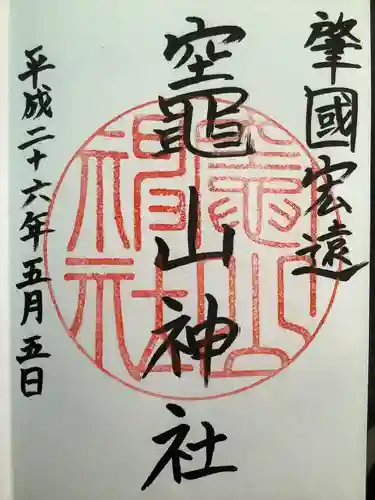 肇國宏遠
竈山神社
平成二十六年五月五日